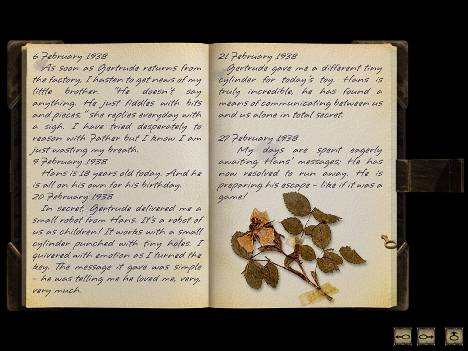 6 February 1938
As soon as Gertrude returns from
the factory, I hasten to get news of my
little brother. "He doesn't say
anything. He just fiddles with bits
and pieces." she replies everyday with
a sigh. I have tried desperately to
reason with Father but I know I am
just wasting my breath.
9 February 1938
Hans is 18 years old today. And he
is all on his own for his birthday.
20 February 1938
In secret, Gertrude delivered me a
small robot from Hans. It's a robot of
us as children! It works with a small
cylinder punched with tiny holes. I
quivered with emotion as I turned the
key. The message it gave was simple
- he was telling me he loved me, very,
very much.
21 February 1938
Gertrude gave me a different tiny
cylinder for today's toy. Hans is
truly incredible, he has found a
means of communicating between us
and us alone in total secret.
27 February 1938
My days are spent eagerly
awaiting Hans' messages; He has
now resolved to run away. He is
preparing his escape - like if it was a
game!